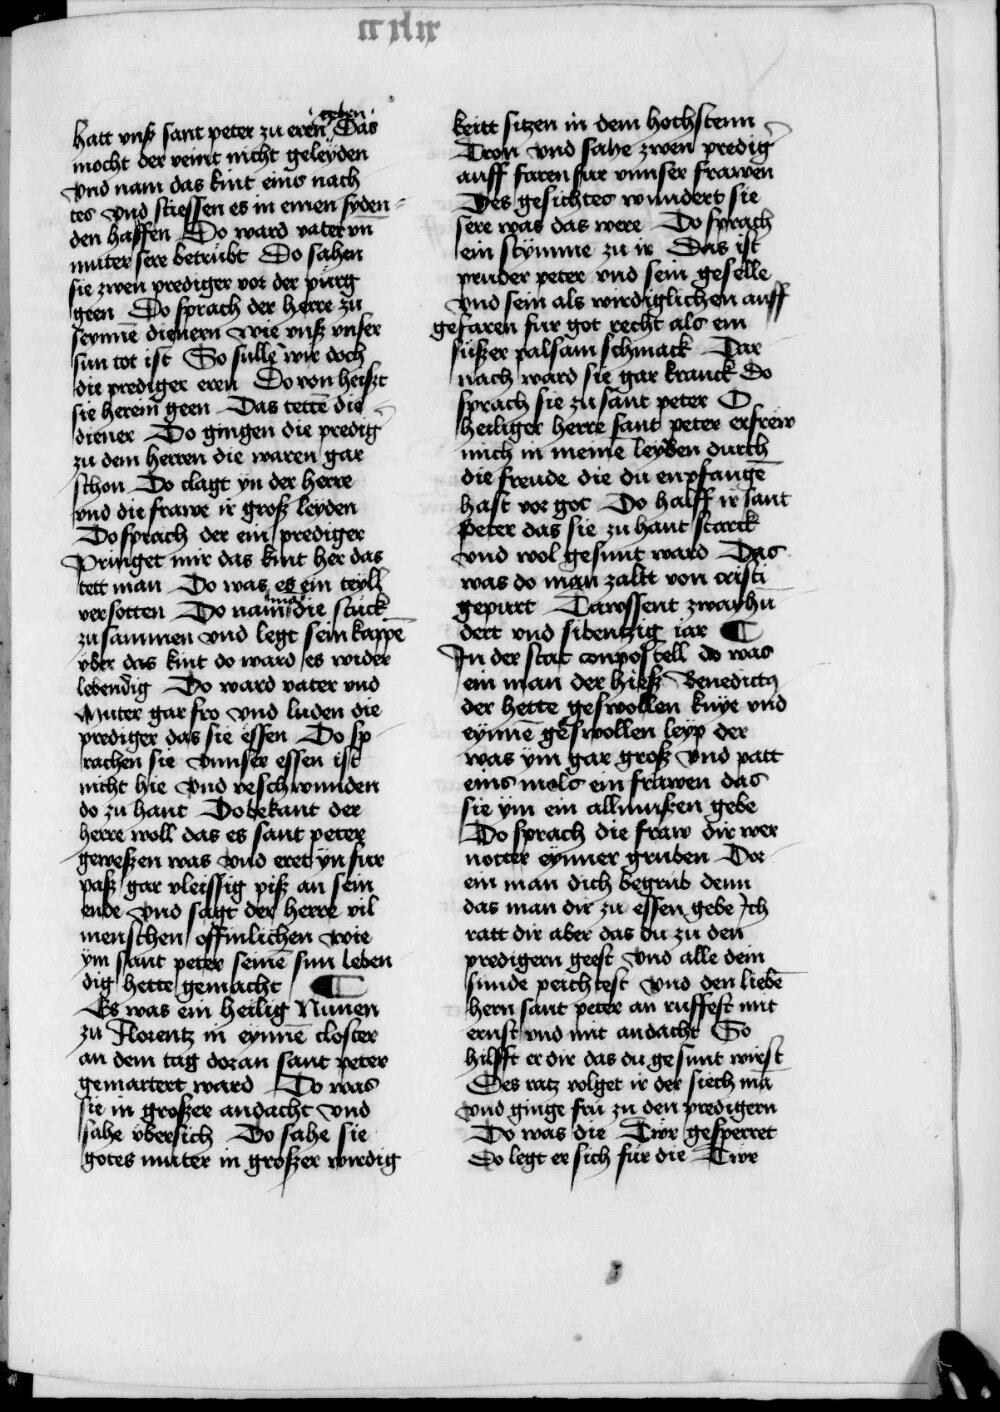 geben
hatt vnß sant peter zu eren Das
mocht der veint nicht geleyden
vnd nam das kint eins nach
tes vnd stiessen es in einen syden
den haffen Do ward vater vn̄
muter sere betrubt Do sahen
sie zwen prediger vor der purg
geen Do sprach der herre zu
seynnē dienern wie vnß vnser
sun tot ist So sullē wir doch
die prediger eren Do von heiszt
sie herein geen Das tettē die
diener Do gingen die predig
zu dem herren die waren gar
schon Do clagt yn der herre
vnd die frawe ir groß leyden
Do sprach der ein prediger
Pringet mir das kint her das
tett man Do was es ein teyll
versotten Do nam ma die stuck
zu sammen vnd legt sein kappē
vber das kint do ward es wider
lebendig Do ward vater vnd
Muter gar fro vnd luden die
prediger das sie essen Do sp
rachen sie vnnser essen ist
nicht hie vnd veschwunden
do zu hant Do bekant der
herre woll das es sant peter
geweßen was vnd eret yn fur
paß gar vleissig piß an sein
ende vnd sagt der herre vil
menschen offinlichen wie
ym sant peter seinē sun leben
dig hette gemacht ¶
Es was ein heilig Nunen
zu Florentz in eynnē closter
an dem tag doran sant peter
gemartert ward Do was
sie in großer andacht vnd
sahe vbersich Do sahe sie
gotes muter in großer wirdig
keitt sitzen in dem hochstenn
Tron vnd sahe zwen predig
auff faren fur vnnser frawen
Des gesichtes wundert sie
sere was das were Do sprach
ein stymme zu ir Das ist
pruder peter vnd sein geselle
vnd sein als wirdiglichen auff
gefaren fur got recht als ein
süßer palsam schmack Dar
nach ward sie gar kranck Do
sprach sie zu sant peter O
heiliger herre sant peter erfrew
mich in meinē leyden durch
die freude die du enpfangē
hast vor got Do halff ir sant
Peter das sie zu hant starck
vnd wol gesunt ward Das
was do man zaltt von cristi
gepurt Tawssent zwayhū
dert vnd sibentzig iar ¶
In der stat conpostell do was
ein man der hieß Benedictꝰ
der hette geswollen knye vnd
eynnē geswollen leyp der
was ym gar groß vnd patt
eins mols ein frawen das
sie ym ein allmußen gebe
Do sprach die fraw dir wer
notter eynner gruben Dor
ein man dich begrub denn
das man dir zu essen gebe Ich
ratt dir aber das du zu den
predigern geest vnd alle dein
sunde peichtest vnd den liebē
hern sant peter an ruffest mit
ernst vnd mit andacht So
hilfft er dir das du gesunt wirst
Des ratz volget ir der siech mā
vnd ginge fru zu den predigern
Do was die Twr gesperret
Do legt er sich für die Twr